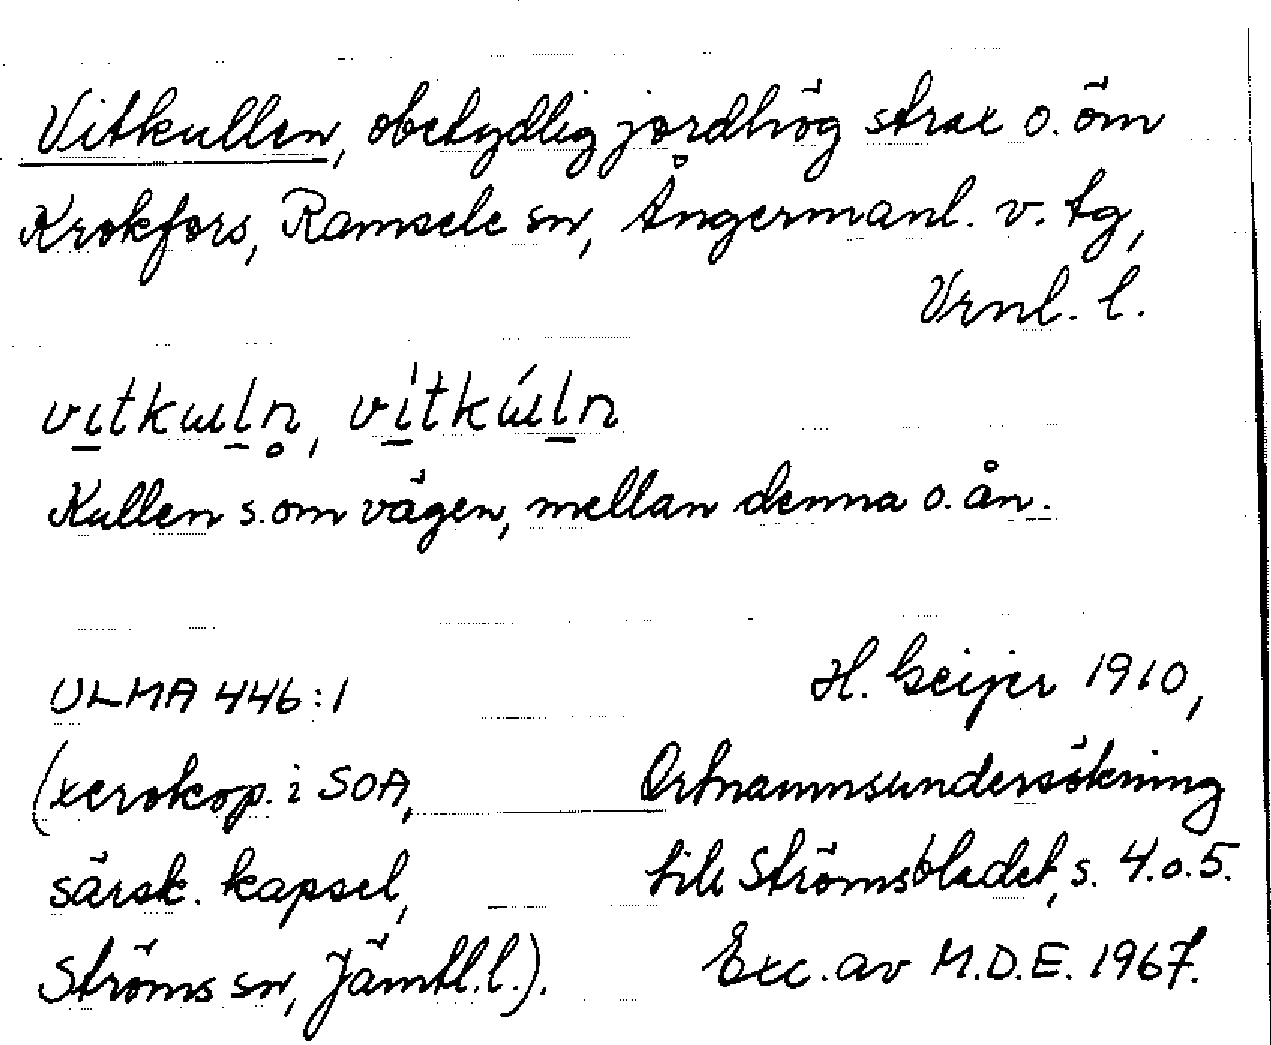 Vitkullen, obetydlig jordhög strax o. öm
Krokfors, Ramsele sn, Ångermanl. v. tg,
Vrnl. l.
vıtkɯln̥, vı̍tkɯ́ln
Kullen s. om vägen, mellan denna o. ån.
ULMA 446:1
H. Geijer 1910,
(xerokop. i SOA,
Ortnamnsundersökning
särsk. kapsel,
till Strömsbladet, s. 4.o.5.
Ströms sn, Jämtl.l.).
Exc. av M.D.E. 1967.